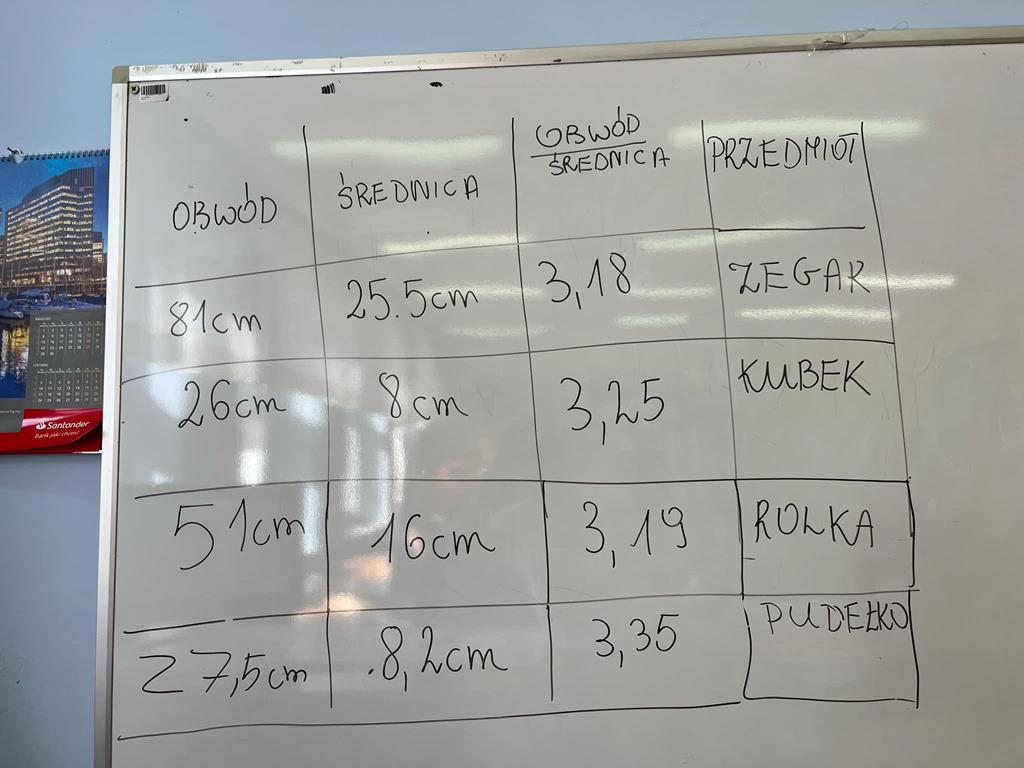 OBWÓD ŚREDNICA OBWÓD PRZEDMIOT
ŚREDNICA
81cm 25.5cm 3,18 ZEGAR
26cm 8cm 3,25 KUBEK
51cm 16cm 3,19 ROLKA
27,5cm 8,2cm 3,35 PUDEŁKO
Santander
bank jaki chcesz